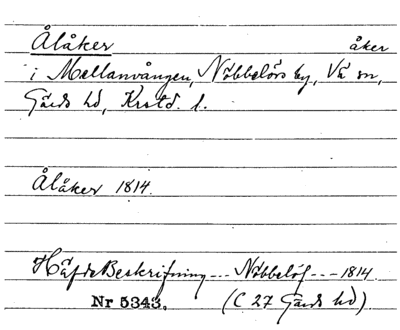 Ålåker åker
i Mellanvången, Nöbbelövs by, Vä sn,
Gärds hd, Krstd. l.
Ålåker 1814.
Häfde Beskrifning --- Nöbbelöf --- 1814.
Nr 5343. (C 27 Gärds hd)